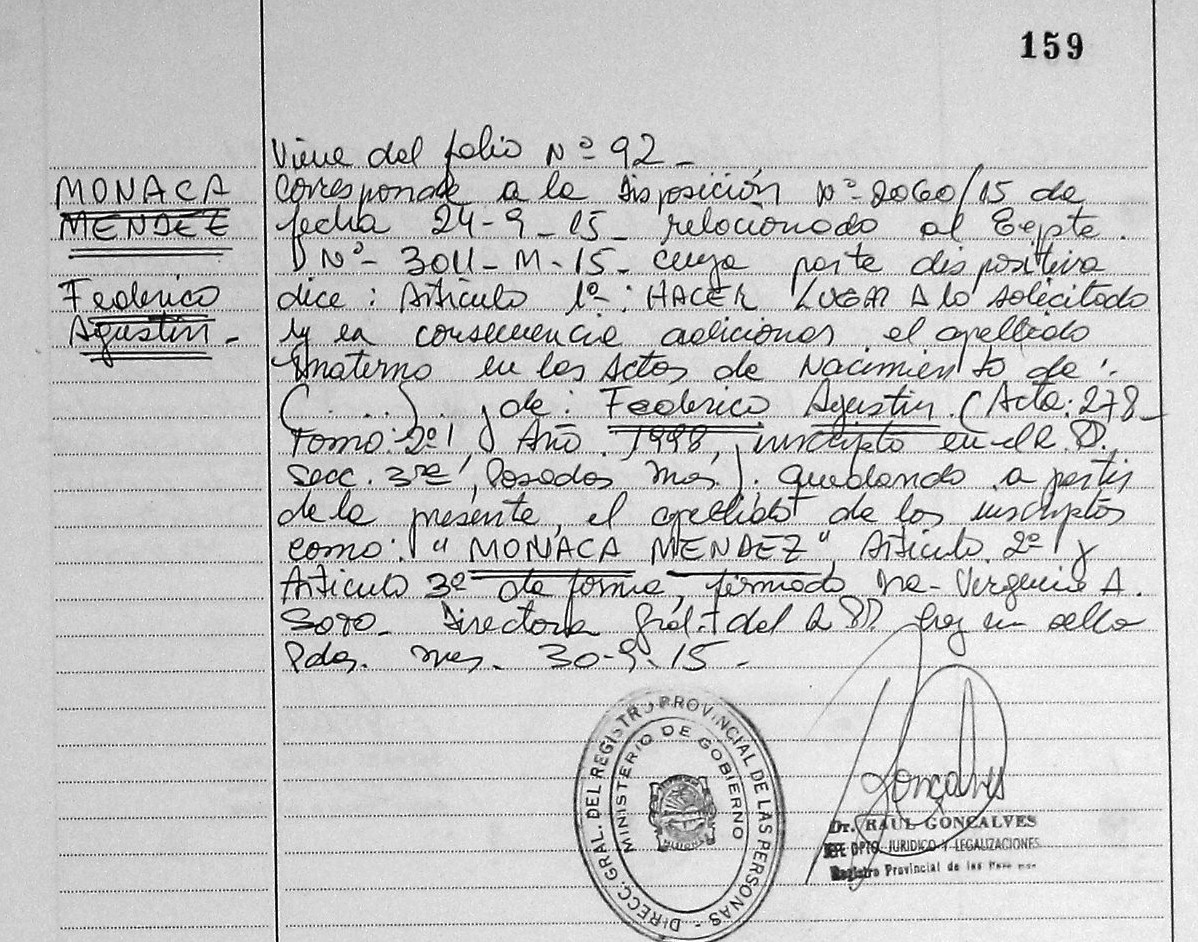 159
Viene del folio Nº 92_
MONACA
MENDEZ
Federico
Agustin_
Corresponde a la Disposición Nº 2060/15 de
fecha 24-9_15_ relacionado al Expte.
Nº- 3011_M-15_ cuya parte dispositiva
dice: Artículo 1º-: HACER LUGAR A lo solicitado
y en consecuencia adicionar el apellido
materno en las Actas de Nacimiento de:
(.....), de: Federico Agustin (Acta: 278_
Tomo: 2º, Año 1998, inscripto en el R.P.
Secc. 3ra, Posadas Mnes). quedando a partir
de la presente, el apellido de los inscriptos
como: "MONACA MENDEZ" Artículo 2º y
Artículo 3º de forma, firmado Virginia A.
Soro_ Directora Gral. del R.P. hay un sello
Pdas. Mnes. 30-9-15_
DIRECC. GRAL. DEL REGISTRO PROVINCIAL DE LAS PERSONAS -
MINISTERIO DE GOBIERNO
Gonçalves
Dr. RAUL GONCALVES
JEFE DPTO. JURIDICO Y LEGALIZACIONES
Registro Provincial de las